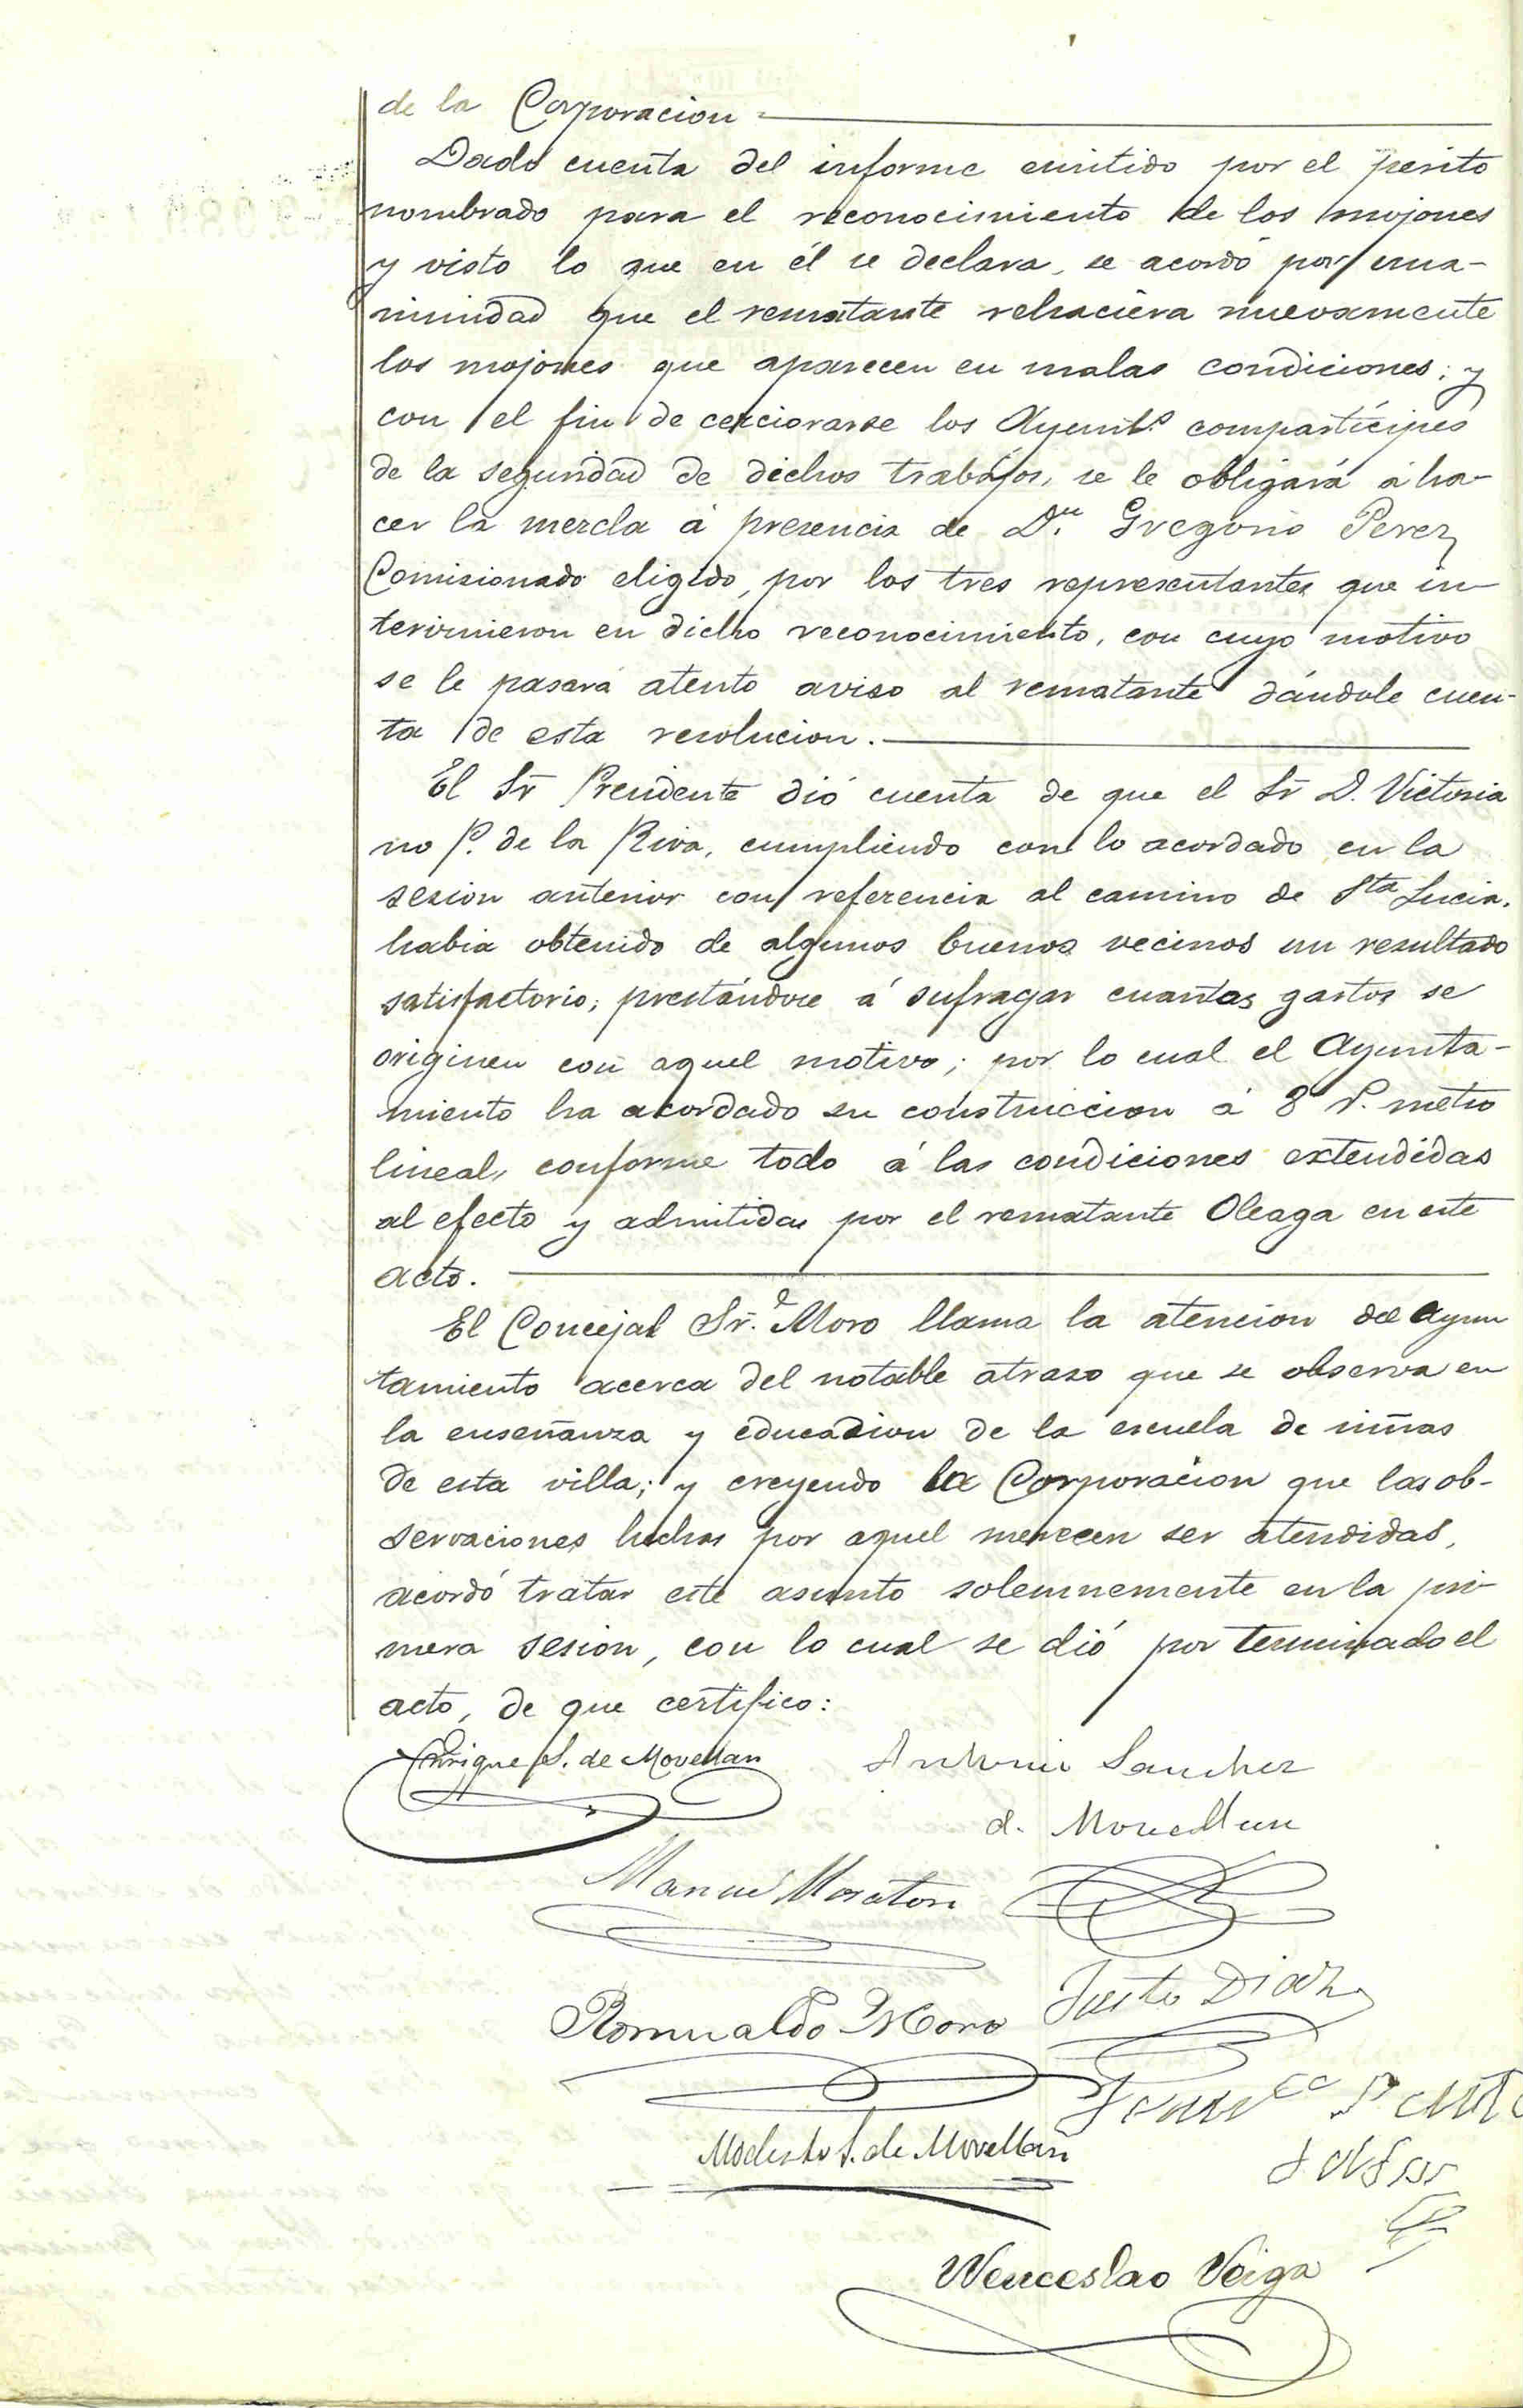 de la Corporacion
Dado cuenta del informe emitido por el perito
nombrado para el reconocimiento de los mojones
y visto lo que en él se declara, se acordó por una-
nimidad que el rematante rehaciera nuevamente
los mojones que aparecen en malas condiciones; y
con el fin de cerciorarse los Ayunt.s compartícipes
de la seguridad de dichos trabajos, se le obligará á ha-
cer la mezcla á presencia de D.n Gregorio Perez
Comisionado eligido, por los tres representantes que in-
tervinieron en dicho reconocimiento, con cuyo motivo
se le pasará atento aviso al rematante dándole cuen-
ta de esta resolucion.
El Sr Presidente dió cuenta de que el Sr D. Victoria
no P. de la Riva, cumpliendo con lo acordado en la
sesion anterior con referencia al camino de Sta Lucia,
habia obtenido de algunos buenos vecinos un resultado
satisfactorio; prestándose á sufragar cuantos gastos se
originen con aquel motivo; por lo cual el Ayunta-
miento ha acordado su construccion á 8 r. metro
lineal, conforme todo á las condiciones extendidas
al efecto y admitidas por el rematante Oleaga en este
acto.
El Concejal Sr. Moro llama la atencion del Ayun
tamiento acerca del notable atraso que se observa en
la enseñanza y educacion de la escuela de niñas
de esta villa; y creyendo la Corporacion que las ob-
servaciones hechas por aquel merecen ser atendidas,
acordó tratar este asunto solemnemente en la pri-
mera sesion, con lo cual se dió por terminado el
acto, de que certifico:
Enrique S. de Movellan
Antonio Sanchez
d. Movellan
Manuel Moraton
Justo Diaz
Romualdo Moro
Modesto S. de Movellan
Wenceslao Veiga